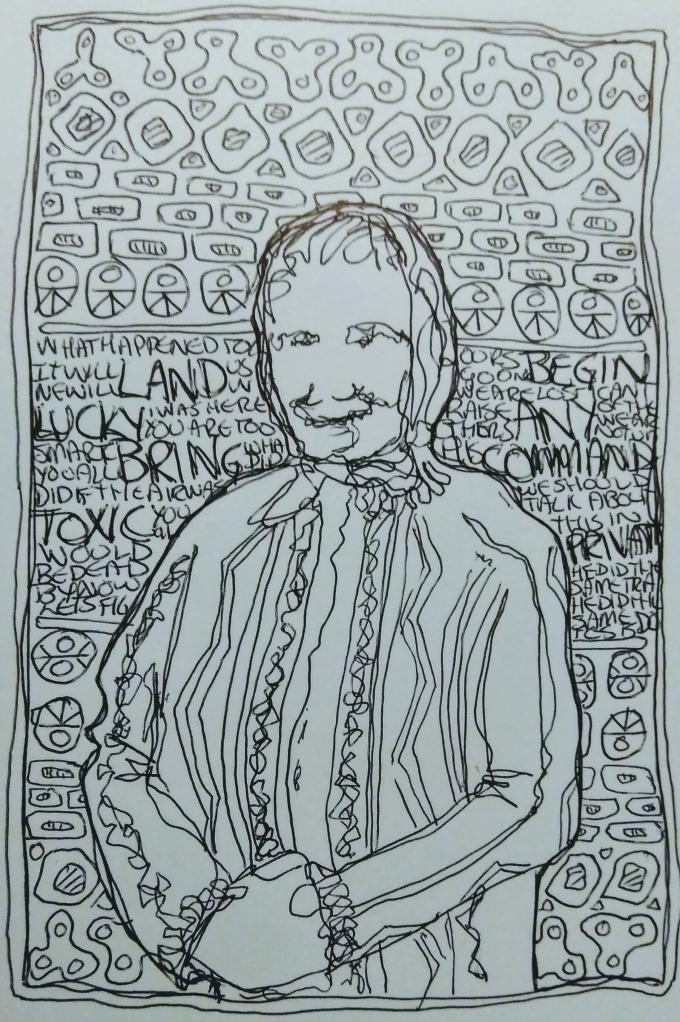 WHAT HAPPENED TO
IT WILL LAND US
NEWILL W
LUCKY I WAS HERE
YOU ARE TOO
SMART BRING
YOU ALL
DID IF THE AIR WAS
TOXIC YOU
WOULD
BE DEAD
BY NOW
LETS
OURS BEGIN
GO ON
WE ARE LOST CAN'T
RAISE ANY OF THE
OTHERS WE ARE
NOT
COMMAND
WE SHOULD
TALK ABOUT
THIS IN
PRIVAT
HE DID THE
SAME TRA
HE DID THE
SAME DO